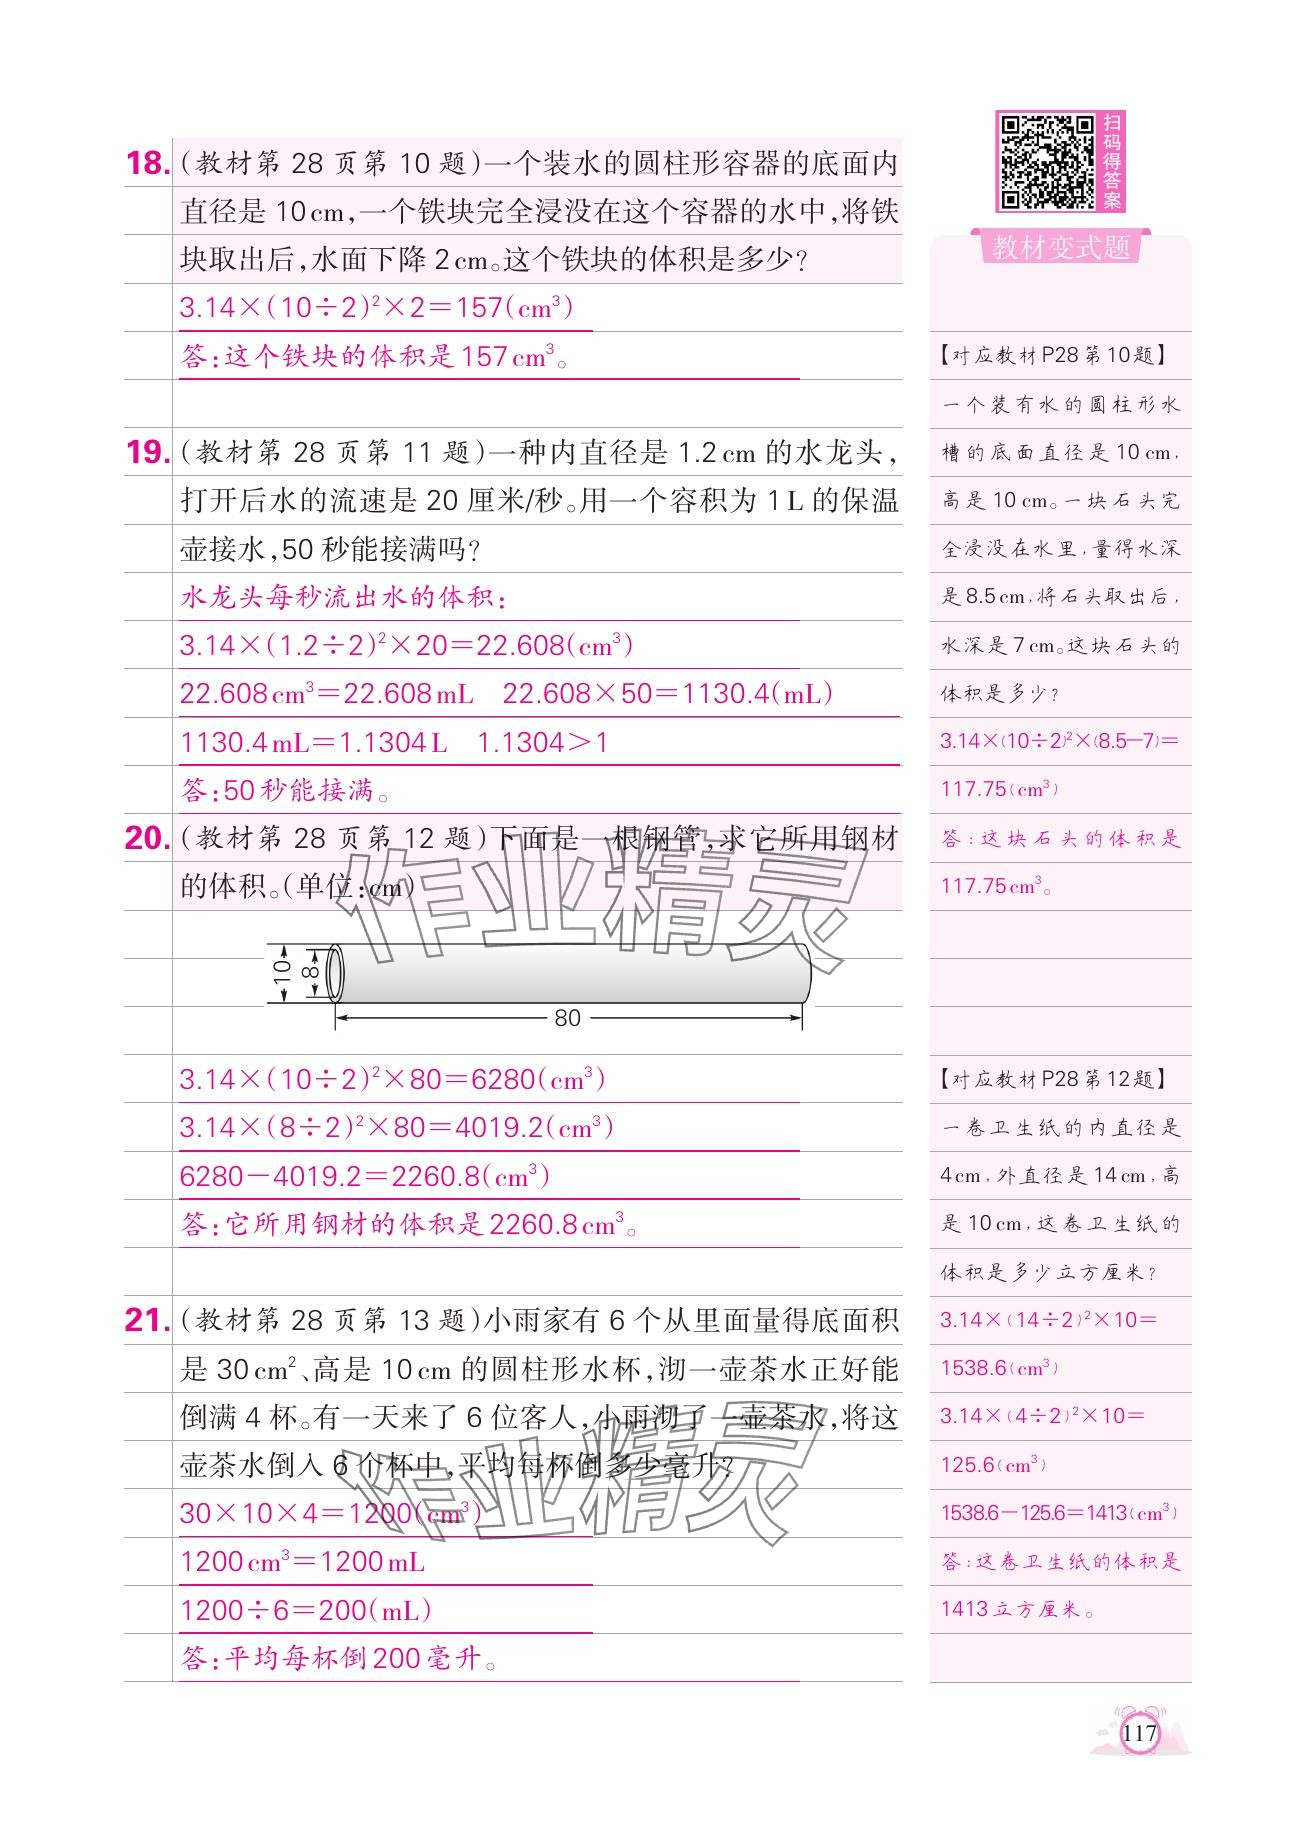 扫码得答案
18.(教材第 28 页第 10 题)一个装水的圆柱形容器的底面内
直径是 10cm,一个铁块完全浸没在这个容器的水中,将铁
块取出后,水面下降 2cm。这个铁块的体积是多少?
3.14×(10÷2)²×2=157(cm³)
答:这个铁块的体积是157cm³。
19.(教材第 28 页第 11 题)一种内直径是 1.2cm 的水龙头,
打开后水的流速是 20 厘米/秒。用一个容积为 1L 的保温
壶接水,50 秒能接满吗?
水龙头每秒流出水的体积:
3.14×(1.2÷2)²×20=22.608(cm³)
22.608cm³=22.608mL 22.608×50=1130.4(mL)
1130.4mL=1.1304L 1.1304>1
答:50秒能接满。
20.(教材第 28 页第 12 题)下面是一根钢管,求它所用钢材
的体积。(单位:cm)
10
8
80
3.14×(10÷2)²×80=6280(cm³)
3.14×(8÷2)²×80=4019.2(cm³)
6280-4019.2=2260.8(cm³)
答:它所用钢材的体积是2260.8cm³。
21.(教材第 28 页第 13 题)小雨家有 6 个从里面量得底面积
是 30cm²、高是 10cm 的圆柱形水杯,沏一壶茶水正好能
倒满 4 杯。有一天来了 6 位客人,小雨沏了一壶茶水,将这
壶茶水倒入 6 个杯中,平均每杯倒多少毫升?
30×10×4=1200(cm³)
1200cm³=1200mL
1200÷6=200(mL)
答:平均每杯倒200毫升。
教材变式题
【对应教材P28第10题】
一个装有水的圆柱形水
槽的底面直径是10cm,
高是10cm。一块石头完
全浸没在水里,量得水深
是8.5cm,将石头取出后,
水深是7cm。这块石头的
体积是多少?
3.14×(10÷2)²×(8.5-7)=
117.75(cm³)
答:这块石头的体积是
117.75cm³。
【对应教材P28第12题】
一卷卫生纸的内直径是
4cm,外直径是14cm,高
是10cm,这卷卫生纸的
体积是多少立方厘米?
3.14×(14÷2)²×10=
1538.6(cm³)
3.14×(4÷2)²×10=
125.6(cm³)
1538.6-125.6=1413(cm³)
答:这卷卫生纸的体积是
1413立方厘米。
作业精灵
作业精灵
117